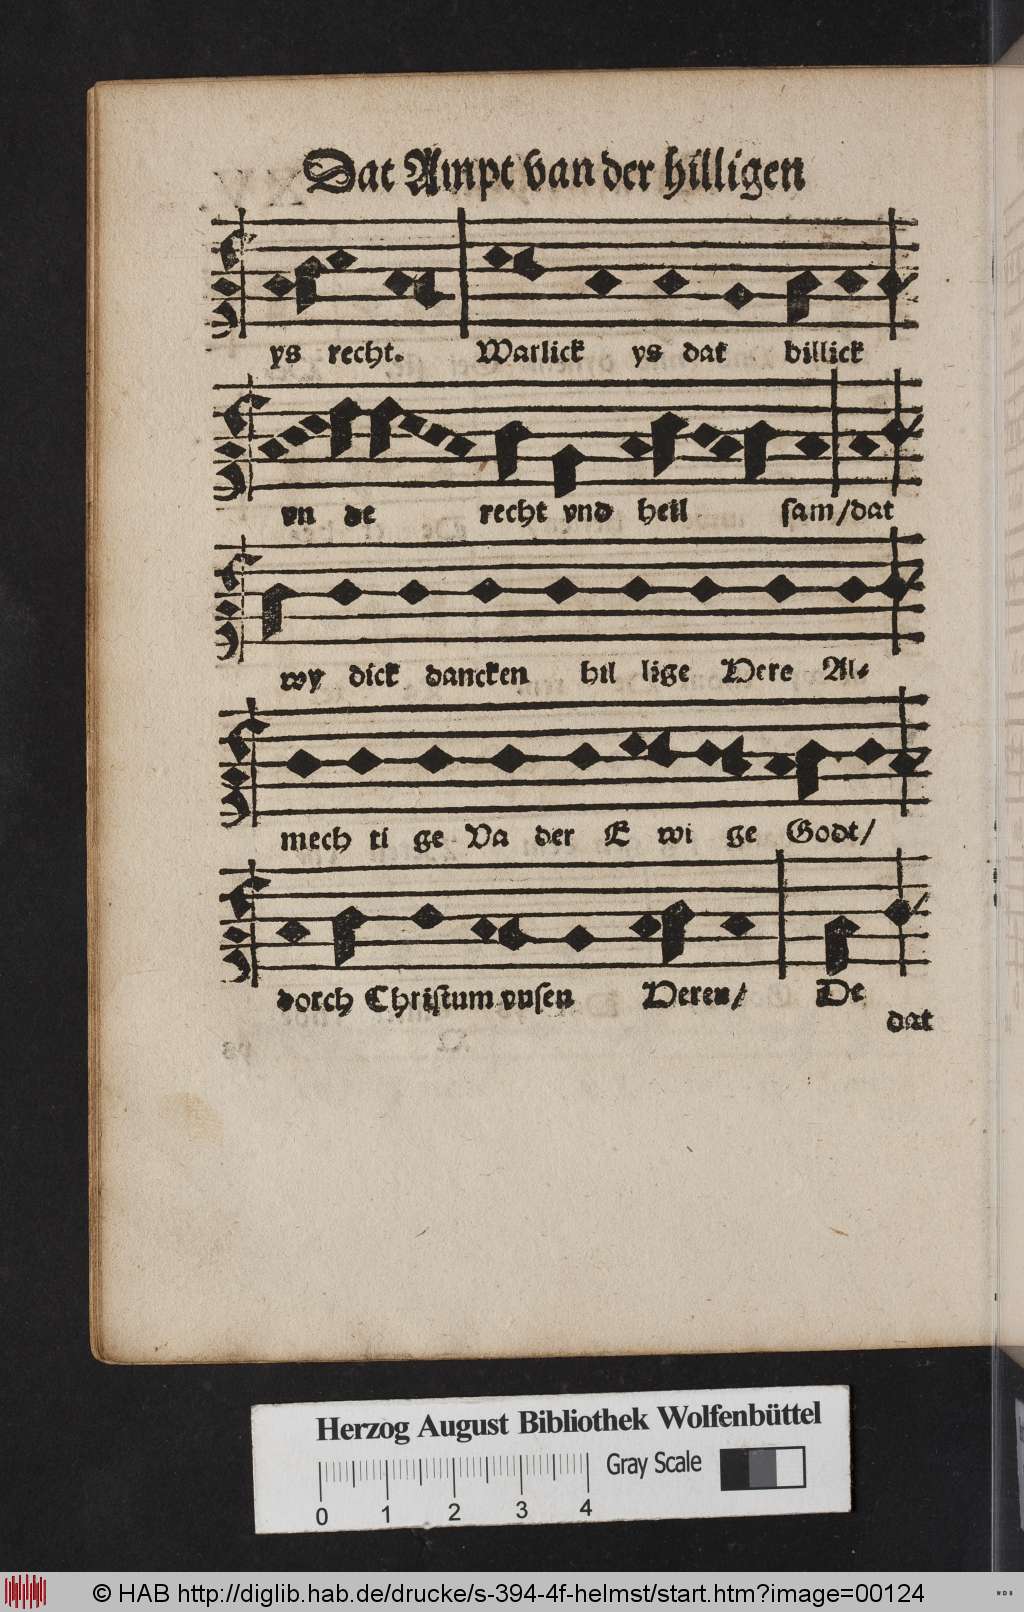 Dat Ampt van der hilligen
ys recht. Warlick ys dat billick
vn de recht vnd heil sam/dat
wy dick dancken hil lige Here Al-
mech ti ge Va der E wi ge Godt/
dorch Christum vnsen Heren/ De
dat
Herzog August Bibliothek Wolfenbüttel
Gray Scale
0 1 2 3 4
© HAB http://diglib.hab.de/drucke/s-394-4f-helmst/start.htm?image=00124